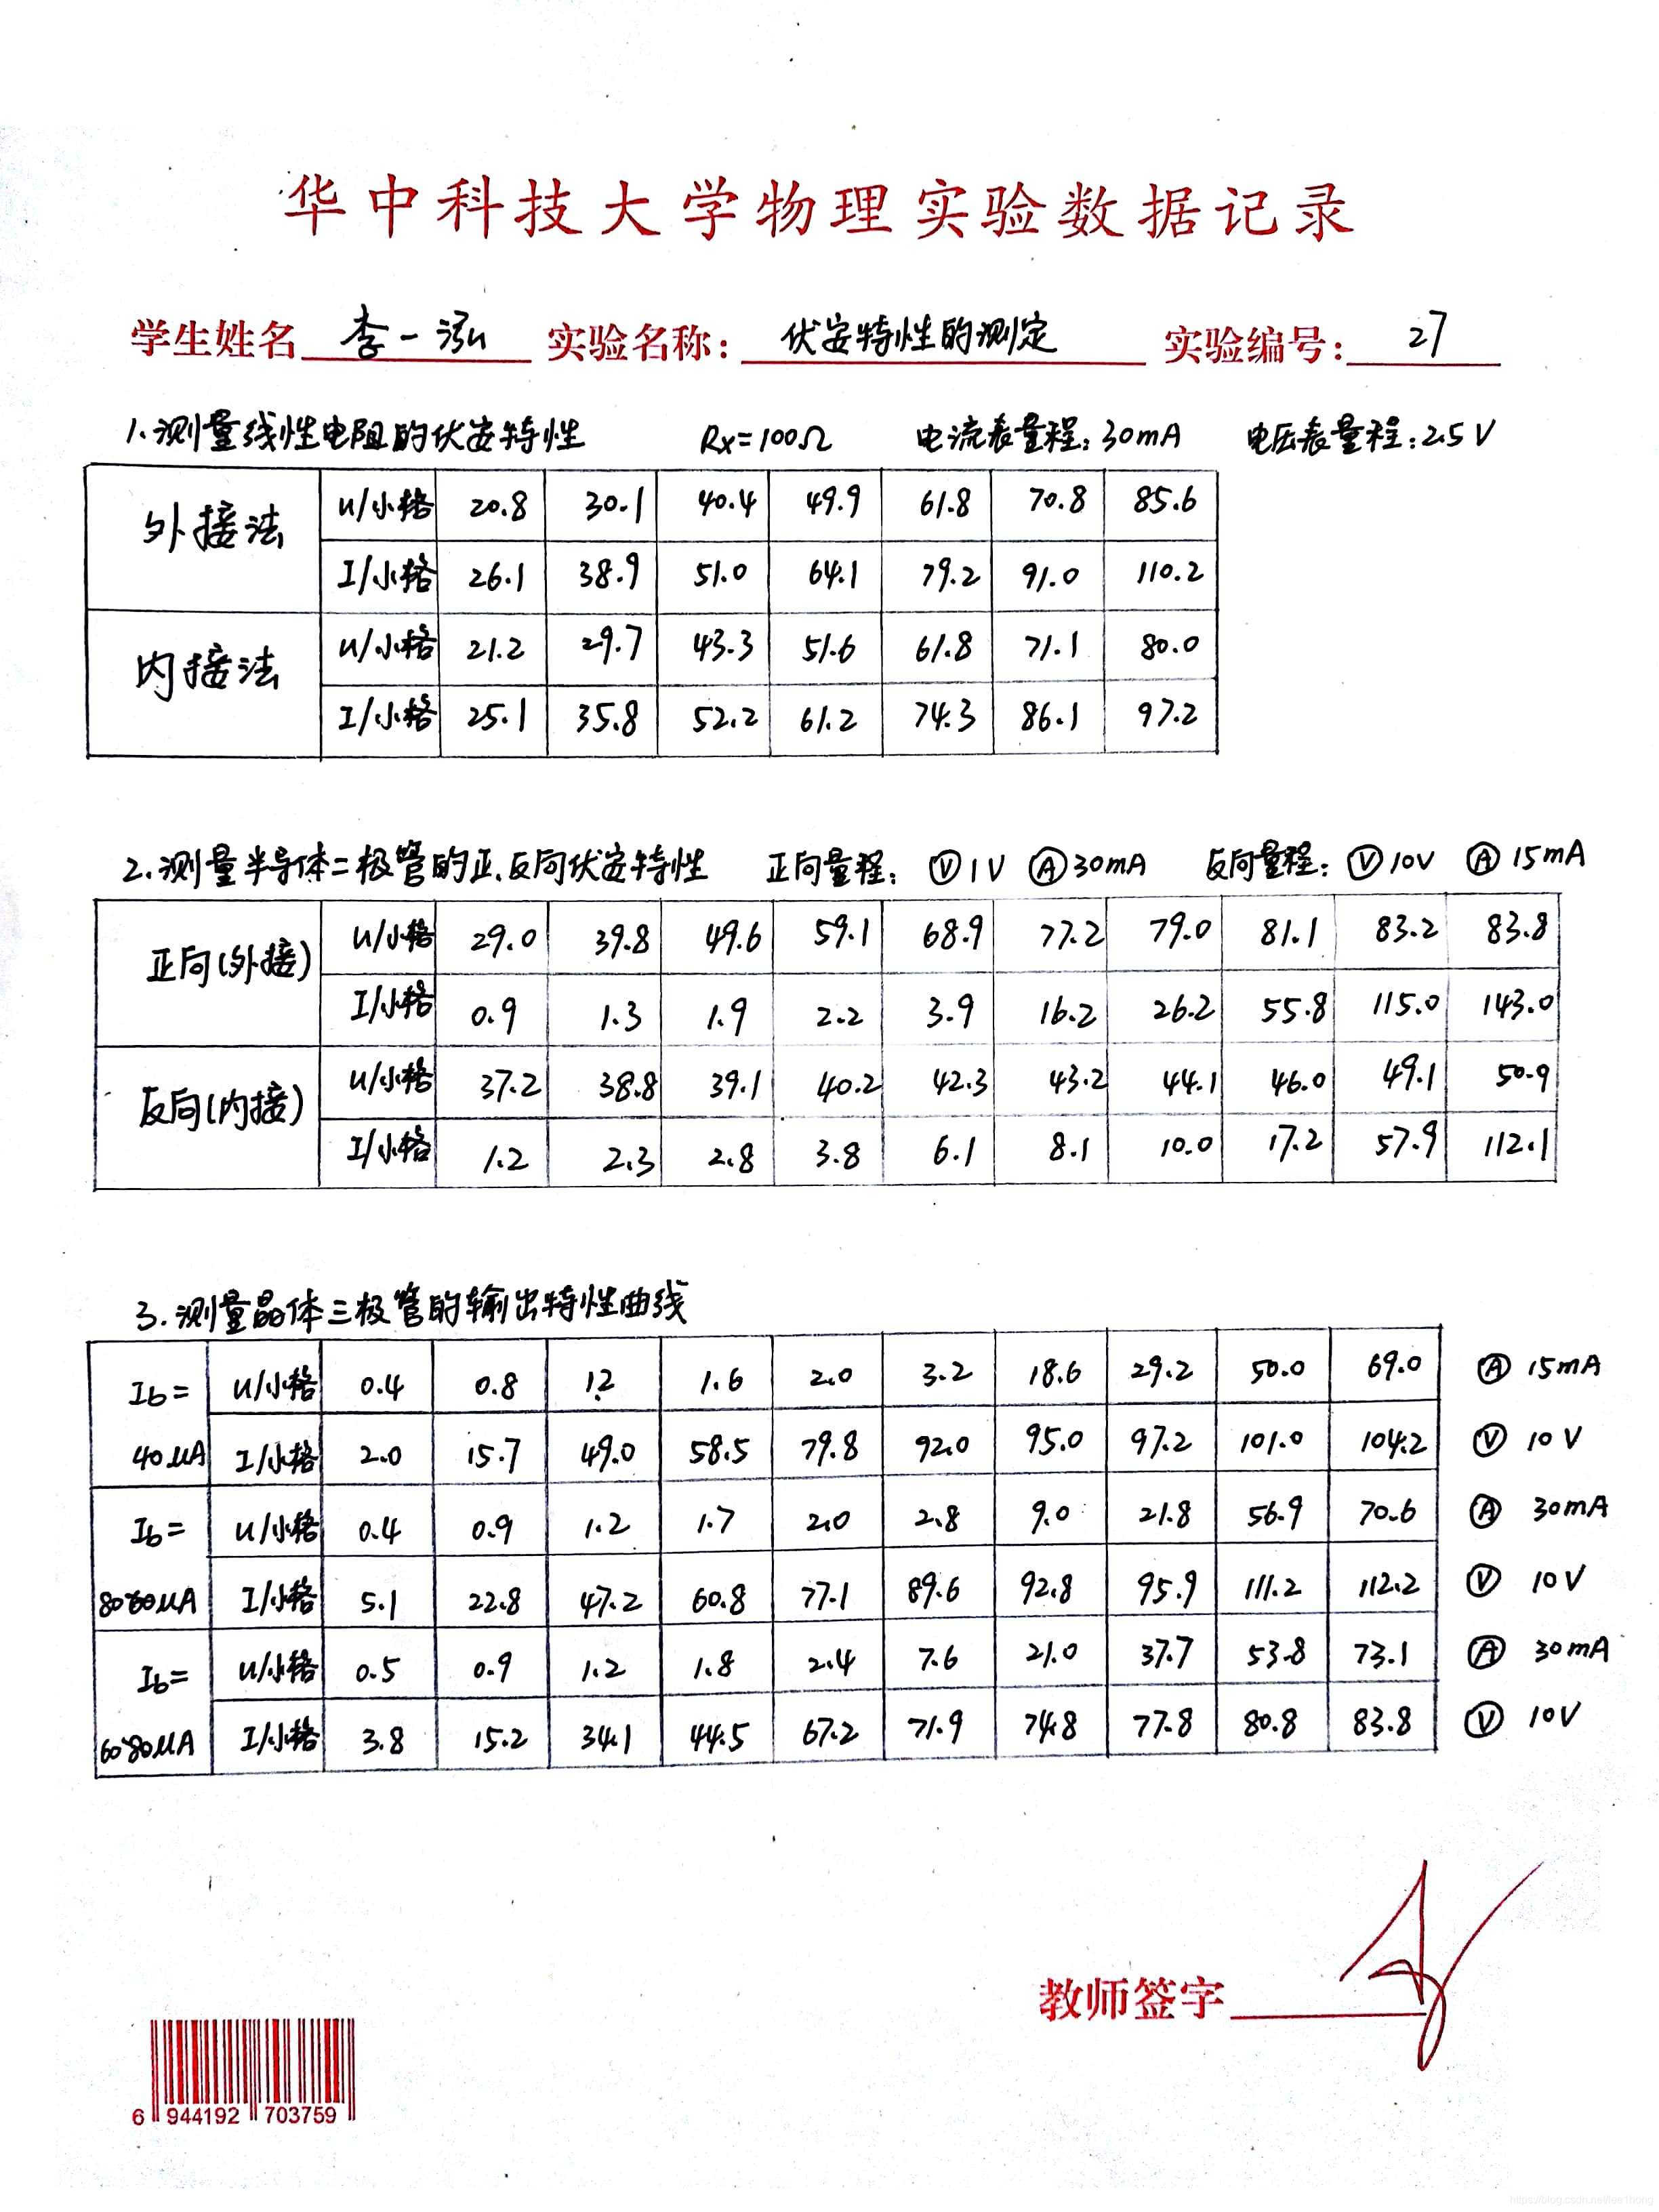 华中科技大学物理实验数据记录
学生姓名 李一泓 实验名称: 伏安特性的测定 实验编号: 27
1.测量线性电阻的伏安特性 Rx=100Ω 电流表量程:30mA 电压表量程:2.5V
外接法 U/小格 20.8 30.1 40.4 49.9 61.8 70.8 85.6
I/小格 26.1 38.9 51.0 64.1 79.2 91.0 110.2
内接法 U/小格 21.2 29.7 43.3 51.6 61.8 71.1 80.0
I/小格 25.1 35.8 52.2 61.2 74.3 86.1 97.2
2.测量半导体二极管的正、反向伏安特性 正向量程: Ⓥ1V Ⓐ30mA 反向量程: Ⓥ10V Ⓐ15mA
正向(外接) U/小格 29.0 39.8 49.6 59.1 68.9 77.2 79.0 81.1 83.2 83.8
I/小格 0.9 1.3 1.9 2.2 3.9 16.2 26.2 55.8 115.0 143.0
反向(内接) U/小格 37.2 38.8 39.1 40.2 42.3 43.2 44.1 46.0 49.1 50.9
I/小格 1.2 2.3 2.8 3.8 6.1 8.1 10.0 17.2 57.9 112.1
3.测量晶体三极管的输出特性曲线
Ib= U/小格 0.4 0.8 1.2 1.6 2.0 3.2 18.6 29.2 50.0 69.0 Ⓐ 15mA
40μA I/小格 2.0 15.7 49.0 58.5 79.8 92.0 95.0 97.2 101.0 104.2 Ⓥ 10V
Ib= U/小格 0.4 0.9 1.2 1.7 2.0 2.8 9.0 21.8 56.9 70.6 Ⓐ 30mA
80 60μA I/小格 5.1 22.8 47.2 60.8 77.1 89.6 92.8 95.9 111.2 112.2 Ⓥ 10V
Ib= U/小格 0.5 0.9 1.2 1.8 2.4 7.6 21.0 37.7 53.8 73.1 Ⓐ 30mA
60 80μA I/小格 3.8 15.2 34.1 44.5 67.2 71.9 74.8 77.8 80.8 83.8 Ⓥ 10V
教师签字
6 944192 703759